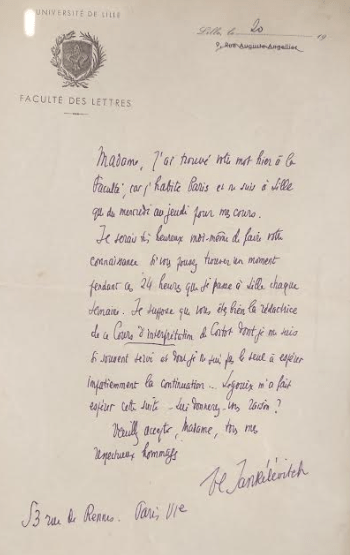 UNIVERSITÉ DE LILLE
FACULTÉ DES LETTRES
Lille, le 20 19
9, Rue Auguste-Angellier
Madame, j'ai trouvé votre mot hier à la
Faculté, car j'habite Paris et ne suis à Lille
que du mercredi au jeudi pour mes cours.
Je serais très heureux moi-même de faire votre
connaissance si vous pouvez trouver un moment
pendant les 24 heures que je passe à Lille chaque
semaine. Je suppose que vous êtes bien la rédactrice
de ce Cours d'Interprétation de Cortot dont je me suis
si souvent servi et dont je ne suis pas le seul à espérer
impatiemment la continuation... Legouix m'a fait
espérer cette suite. Lui donnerez-vous raison ?
Veuillez accepter, Madame, tous mes
respectueux hommages
Vl Jankélévitch
53 rue de Rennes. Paris, VIe